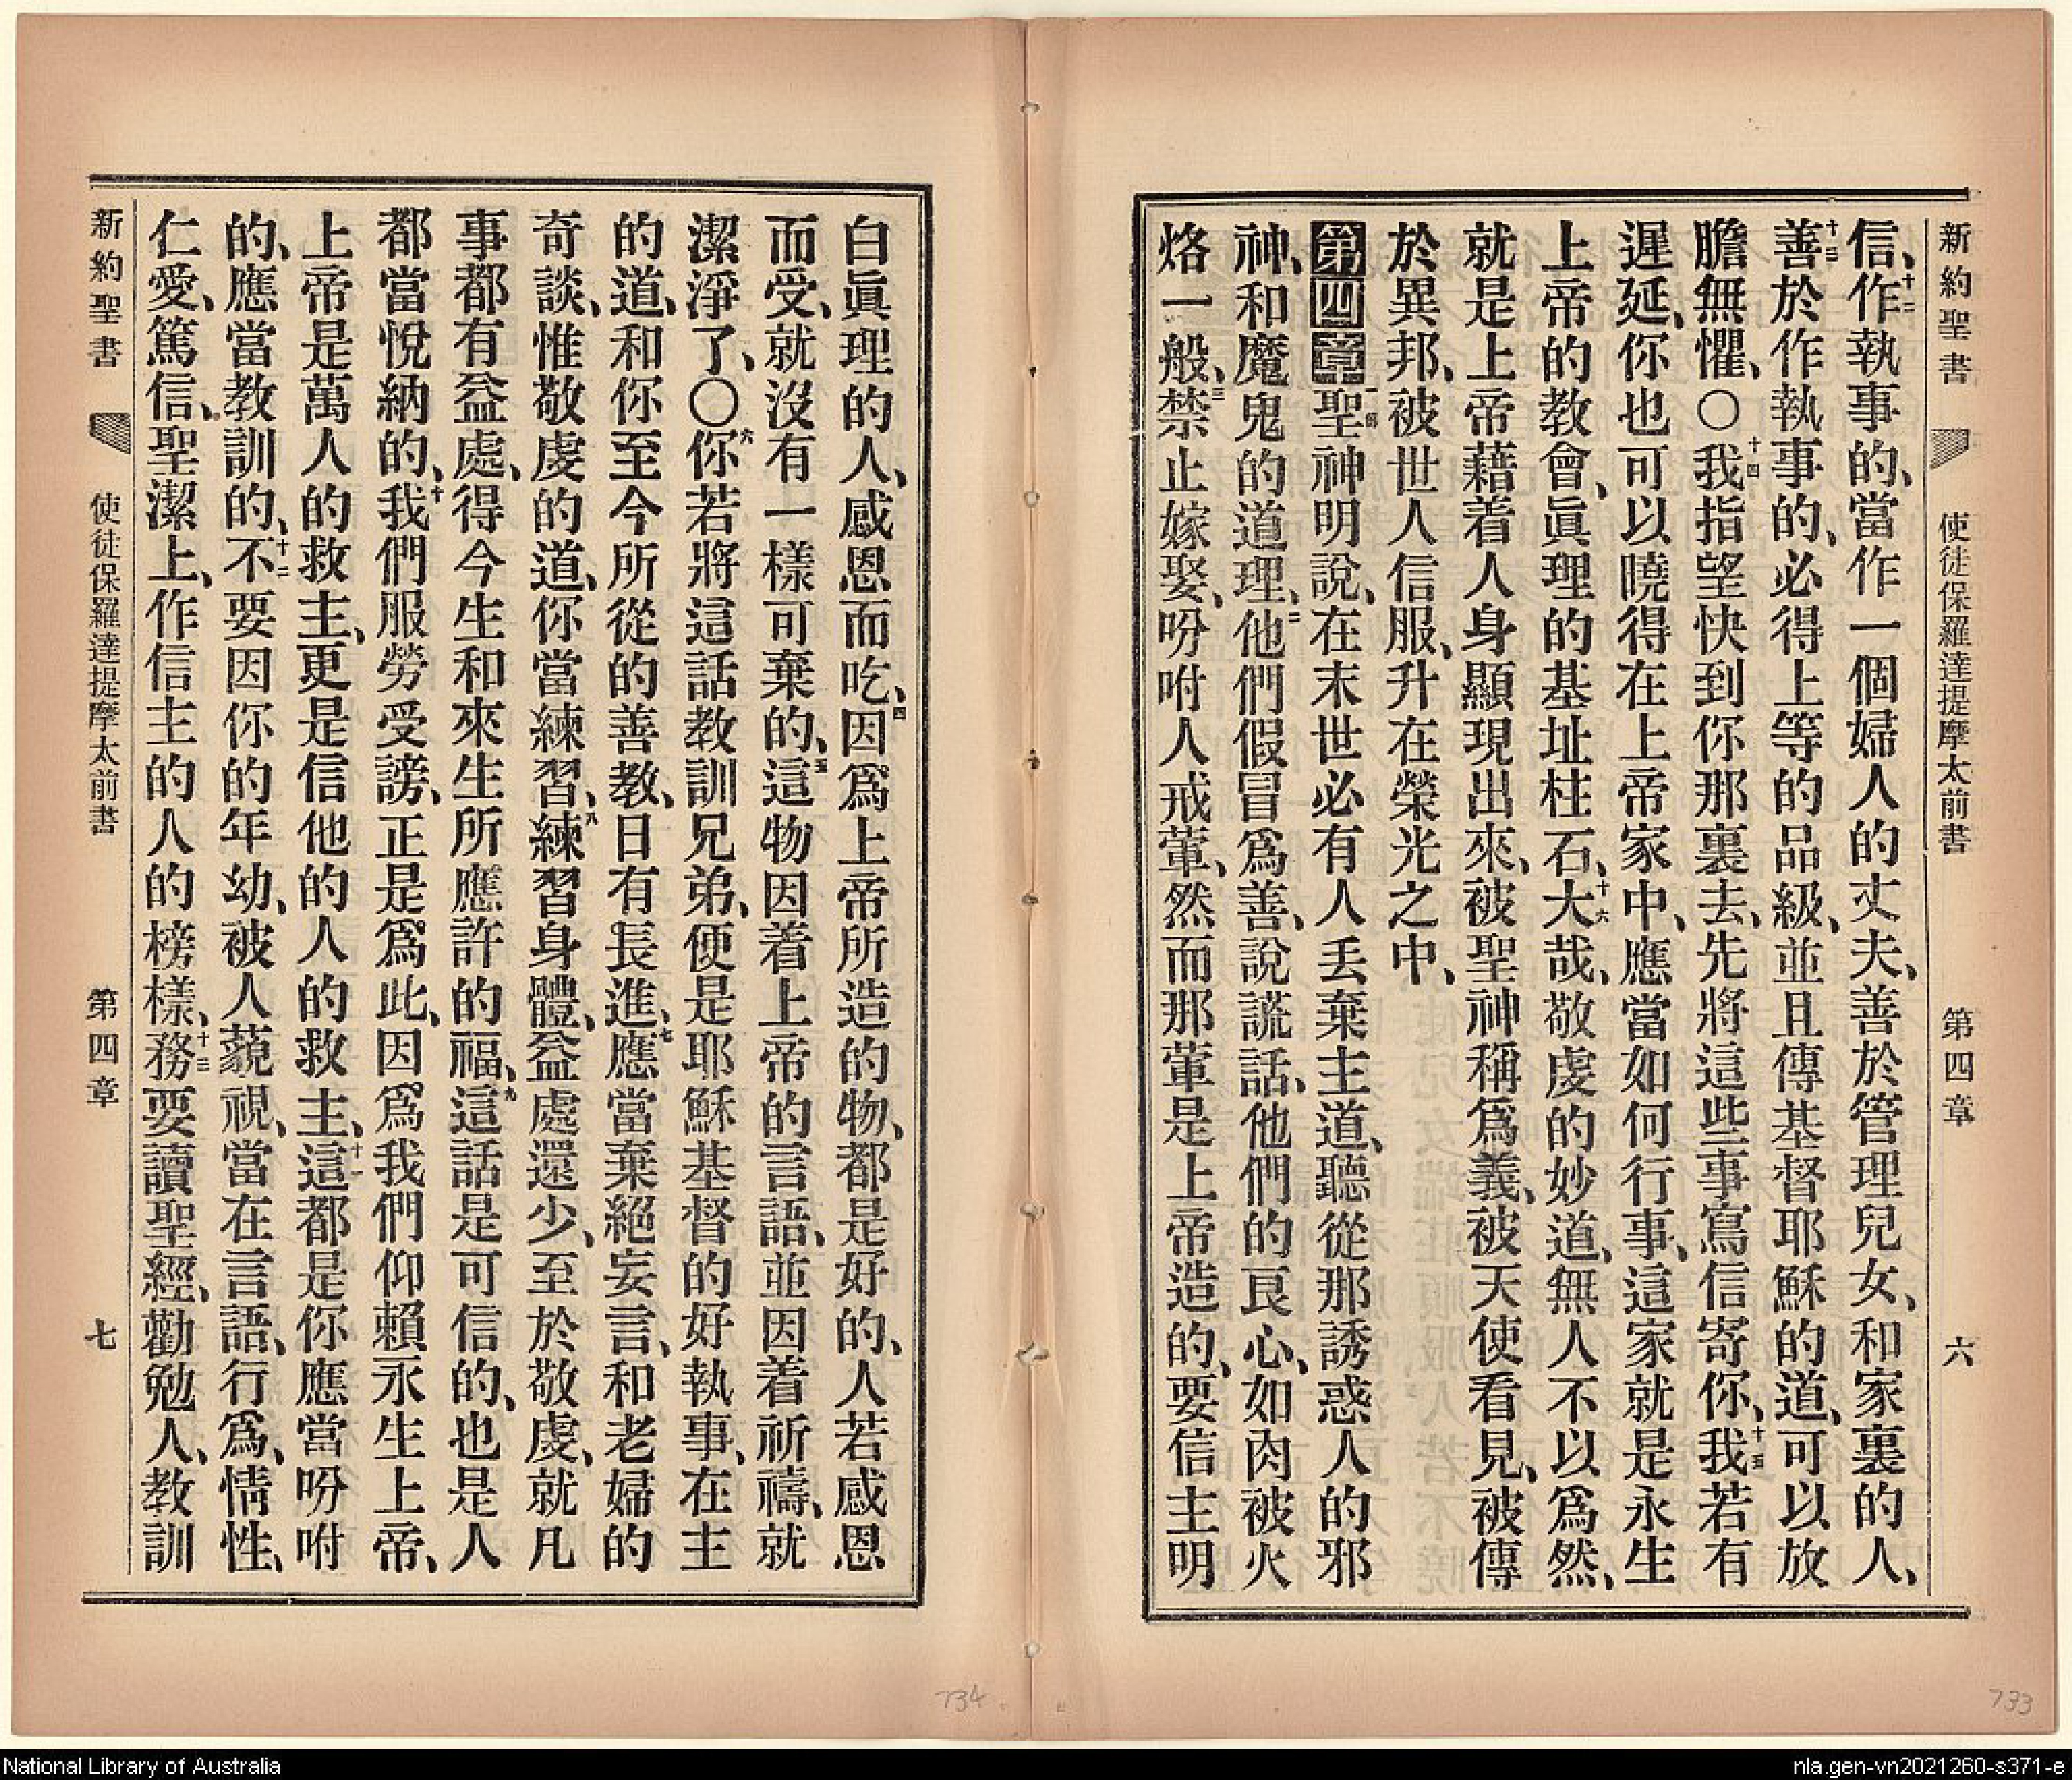 新約聖書 使徒保羅達提摩太前書 第四章 六
信、十二作執事的、當作一個婦人的丈夫、善於管理兒女、和家裏的人、
十三善於作執事的、必得上等的品級、並且傳基督耶穌的道、可以放
膽無懼、〇十四我指望快到你那裏去、先將這些事寫信寄你、十五我若有
遲延、你也可以曉得在上帝家中、應當如何行事、這家就是永生
上帝的教會、眞理的基址柱石、十六大哉、敬虔的妙道、無人不以爲然、
就是上帝藉着人身顯現出來、被聖神稱爲義、被天使看見、被傳
於異邦、被世人信服、升在榮光之中、
第四章一節聖神明說、在末世必有人丟棄主道、聽從那誘惑人的邪
神、和魔鬼的道理、二他們假冒爲善、說謊話、他們的良心、如肉被火
烙一般、三禁止嫁娶、吩咐人戒葷、然而那葷是上帝造的、要信主明
白眞理的人、感恩而吃、四因爲上帝所造的物、都是好的、人若感恩
而受、就沒有一樣可棄的、五這物因着上帝的言語、並因着祈禱、就
潔淨了、〇六你若將這話教訓兄弟、便是耶穌基督的好執事、在主
的道、和你至今所從的善教、日有長進、七應當棄絕妄言、和老婦的
奇談、惟敬虔的道、你當練習、八練習身體、益處還少、至於敬虔、就凡
事都有益處、得今生和來生所應許的福、九這話是可信的、也是人
都當悅納的、十我們服勞受謗、正是爲此、因爲我們仰賴永生上帝、
上帝是萬人的救主、更是信他的人的救主、十一這都是你應當吩咐
的、應當教訓的、十二不要因你的年幼、被人藐視、當在言語、行爲、情性、
仁愛、篤信、聖潔上、作信主的人的榜樣、十三務要讀聖經、勸勉人、教訓
新約聖書 使徒保羅達提摩太前書 第四章 七
734
733
National Library of Australia
nla.gen-vn2021260-s371-e